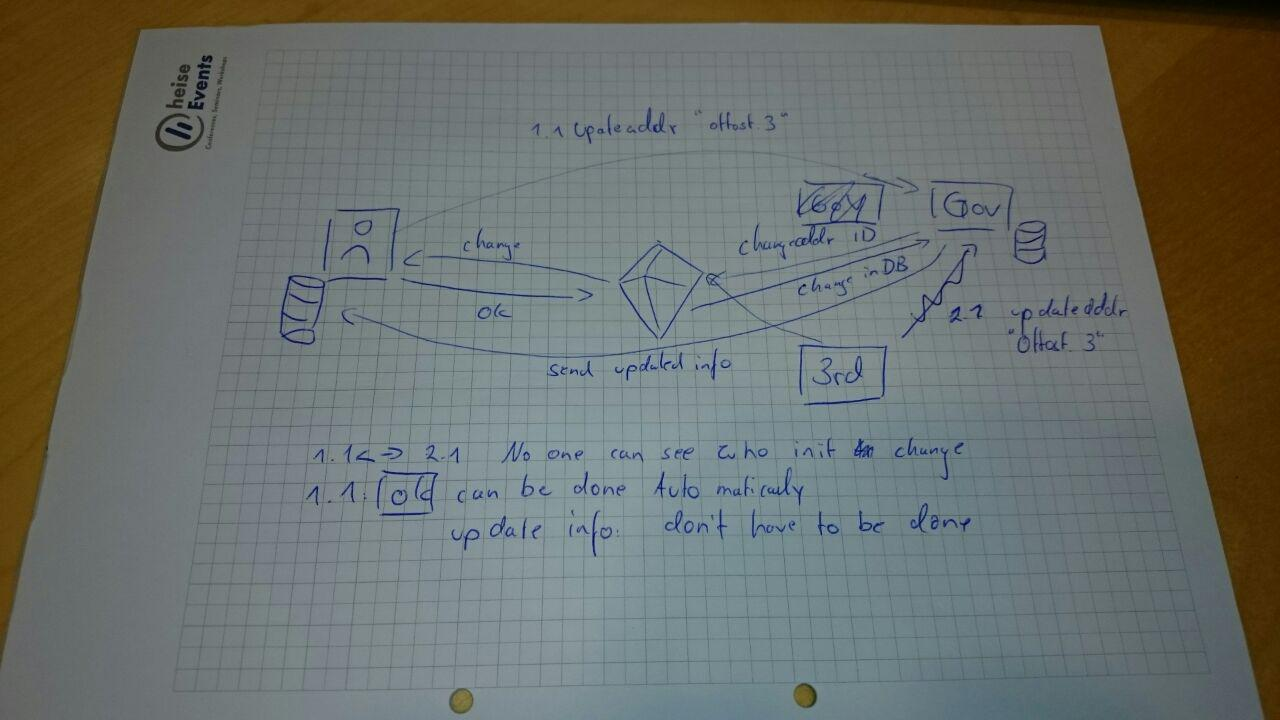 heise
Events
Conferences, Seminars, Workshops
1.1 Upateaddr "ottost. 3"
Gov
change
changeaddr ID
change in DB
ok
2.1 updateaddr
"Ottost. 3"
send updated info
3rd
1.1 <-> 2.1 No one can see who init change
1.1: old can be done Automatically
update info: don't have to be done